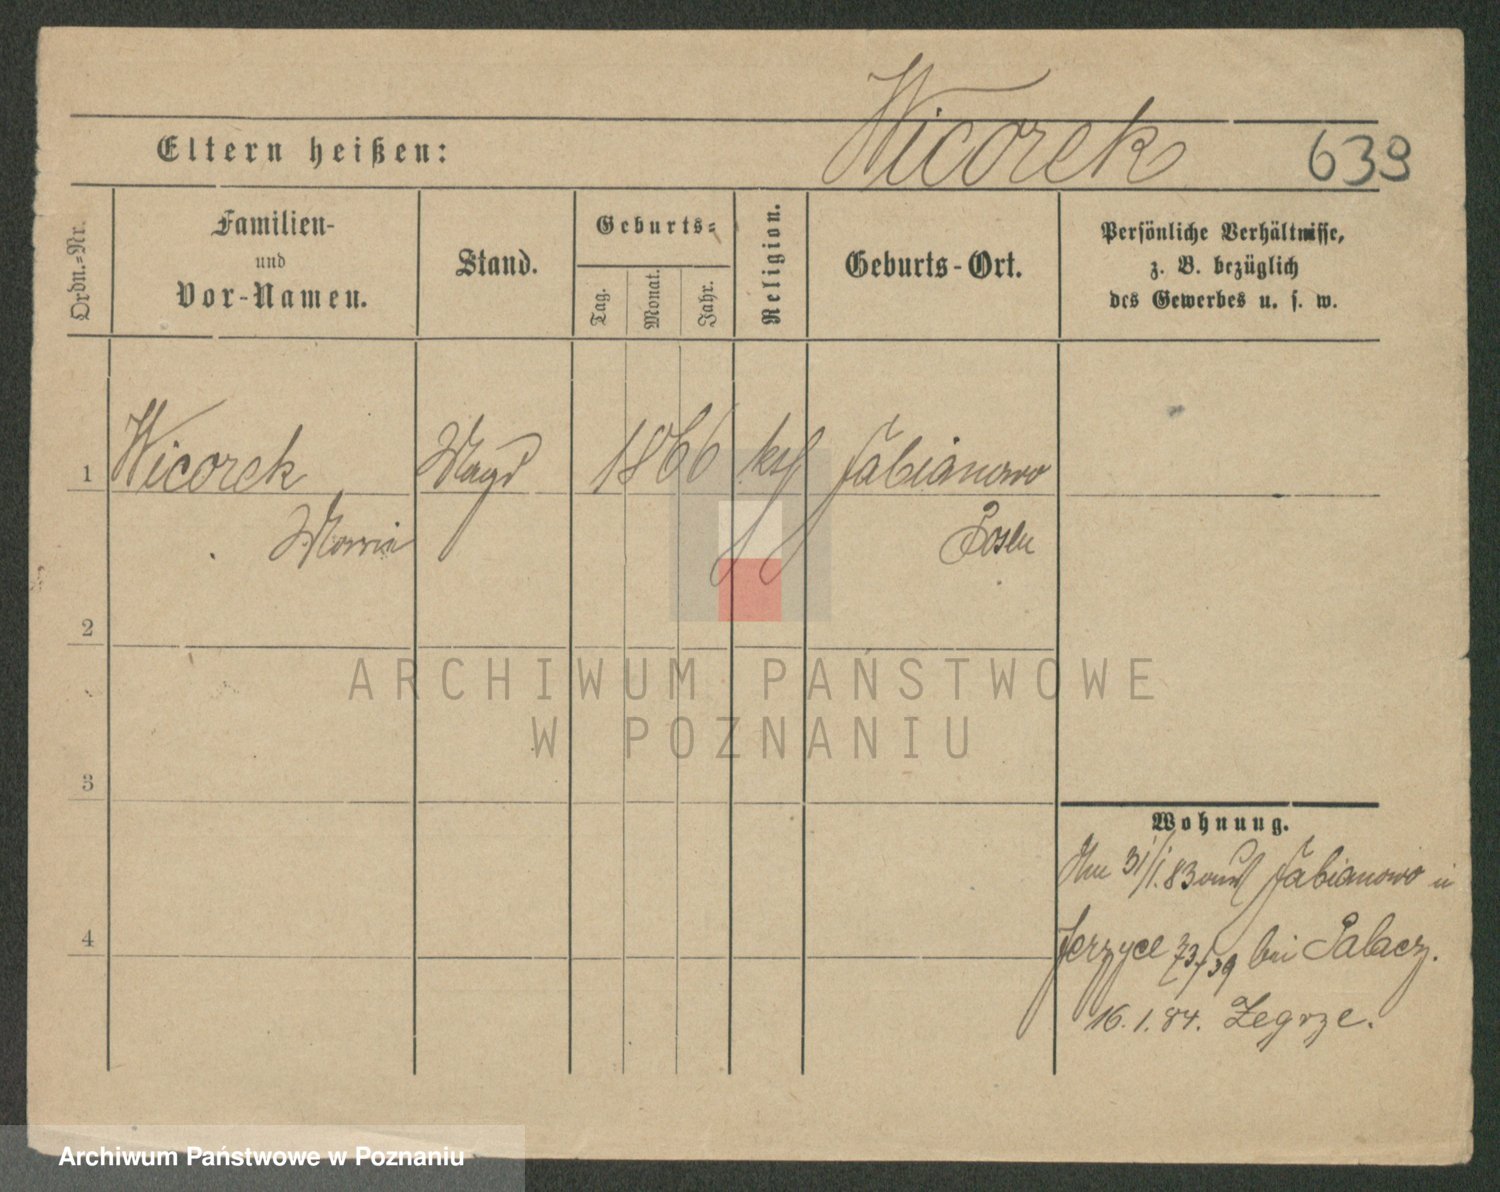 Wicorek
Eltern heißen:
639
Ordn.=Nr.
Familien-
und
Vor-Namen.
Stand.
Geburts=
Tag.
Monat.
Jahr.
Religion.
Geburts-Ort.
Persönliche Verhältnisse,
z. B. bezüglich
des Gewerbes u. s. w.
1 Wicorek Magd 1866 kth Fabianowo
Posen
2
ARCHIWUM PAŃSTWOWE
W POZNANIU
3
Wohnung.
31/1.83 Fabianowo
4
Jerzyce 73/39 bei Palacz.
16.1.84. Zegrze.
Archiwum Państwowe w Poznaniu